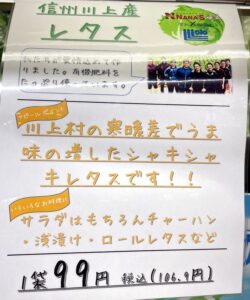 信州川上産
レタス
私たちが愛情込めて作
りました。有機肥料を
たっぷり使っています。
NANA'S
アピールポイント
川上村の寒暖差でうま
味の増したシャキシャ
キレタスです！！
いろいろなお料理に
サラダはもちろんチャーハン
・浅漬け・ロールレタスなど
1袋99円 税込(106.9円)